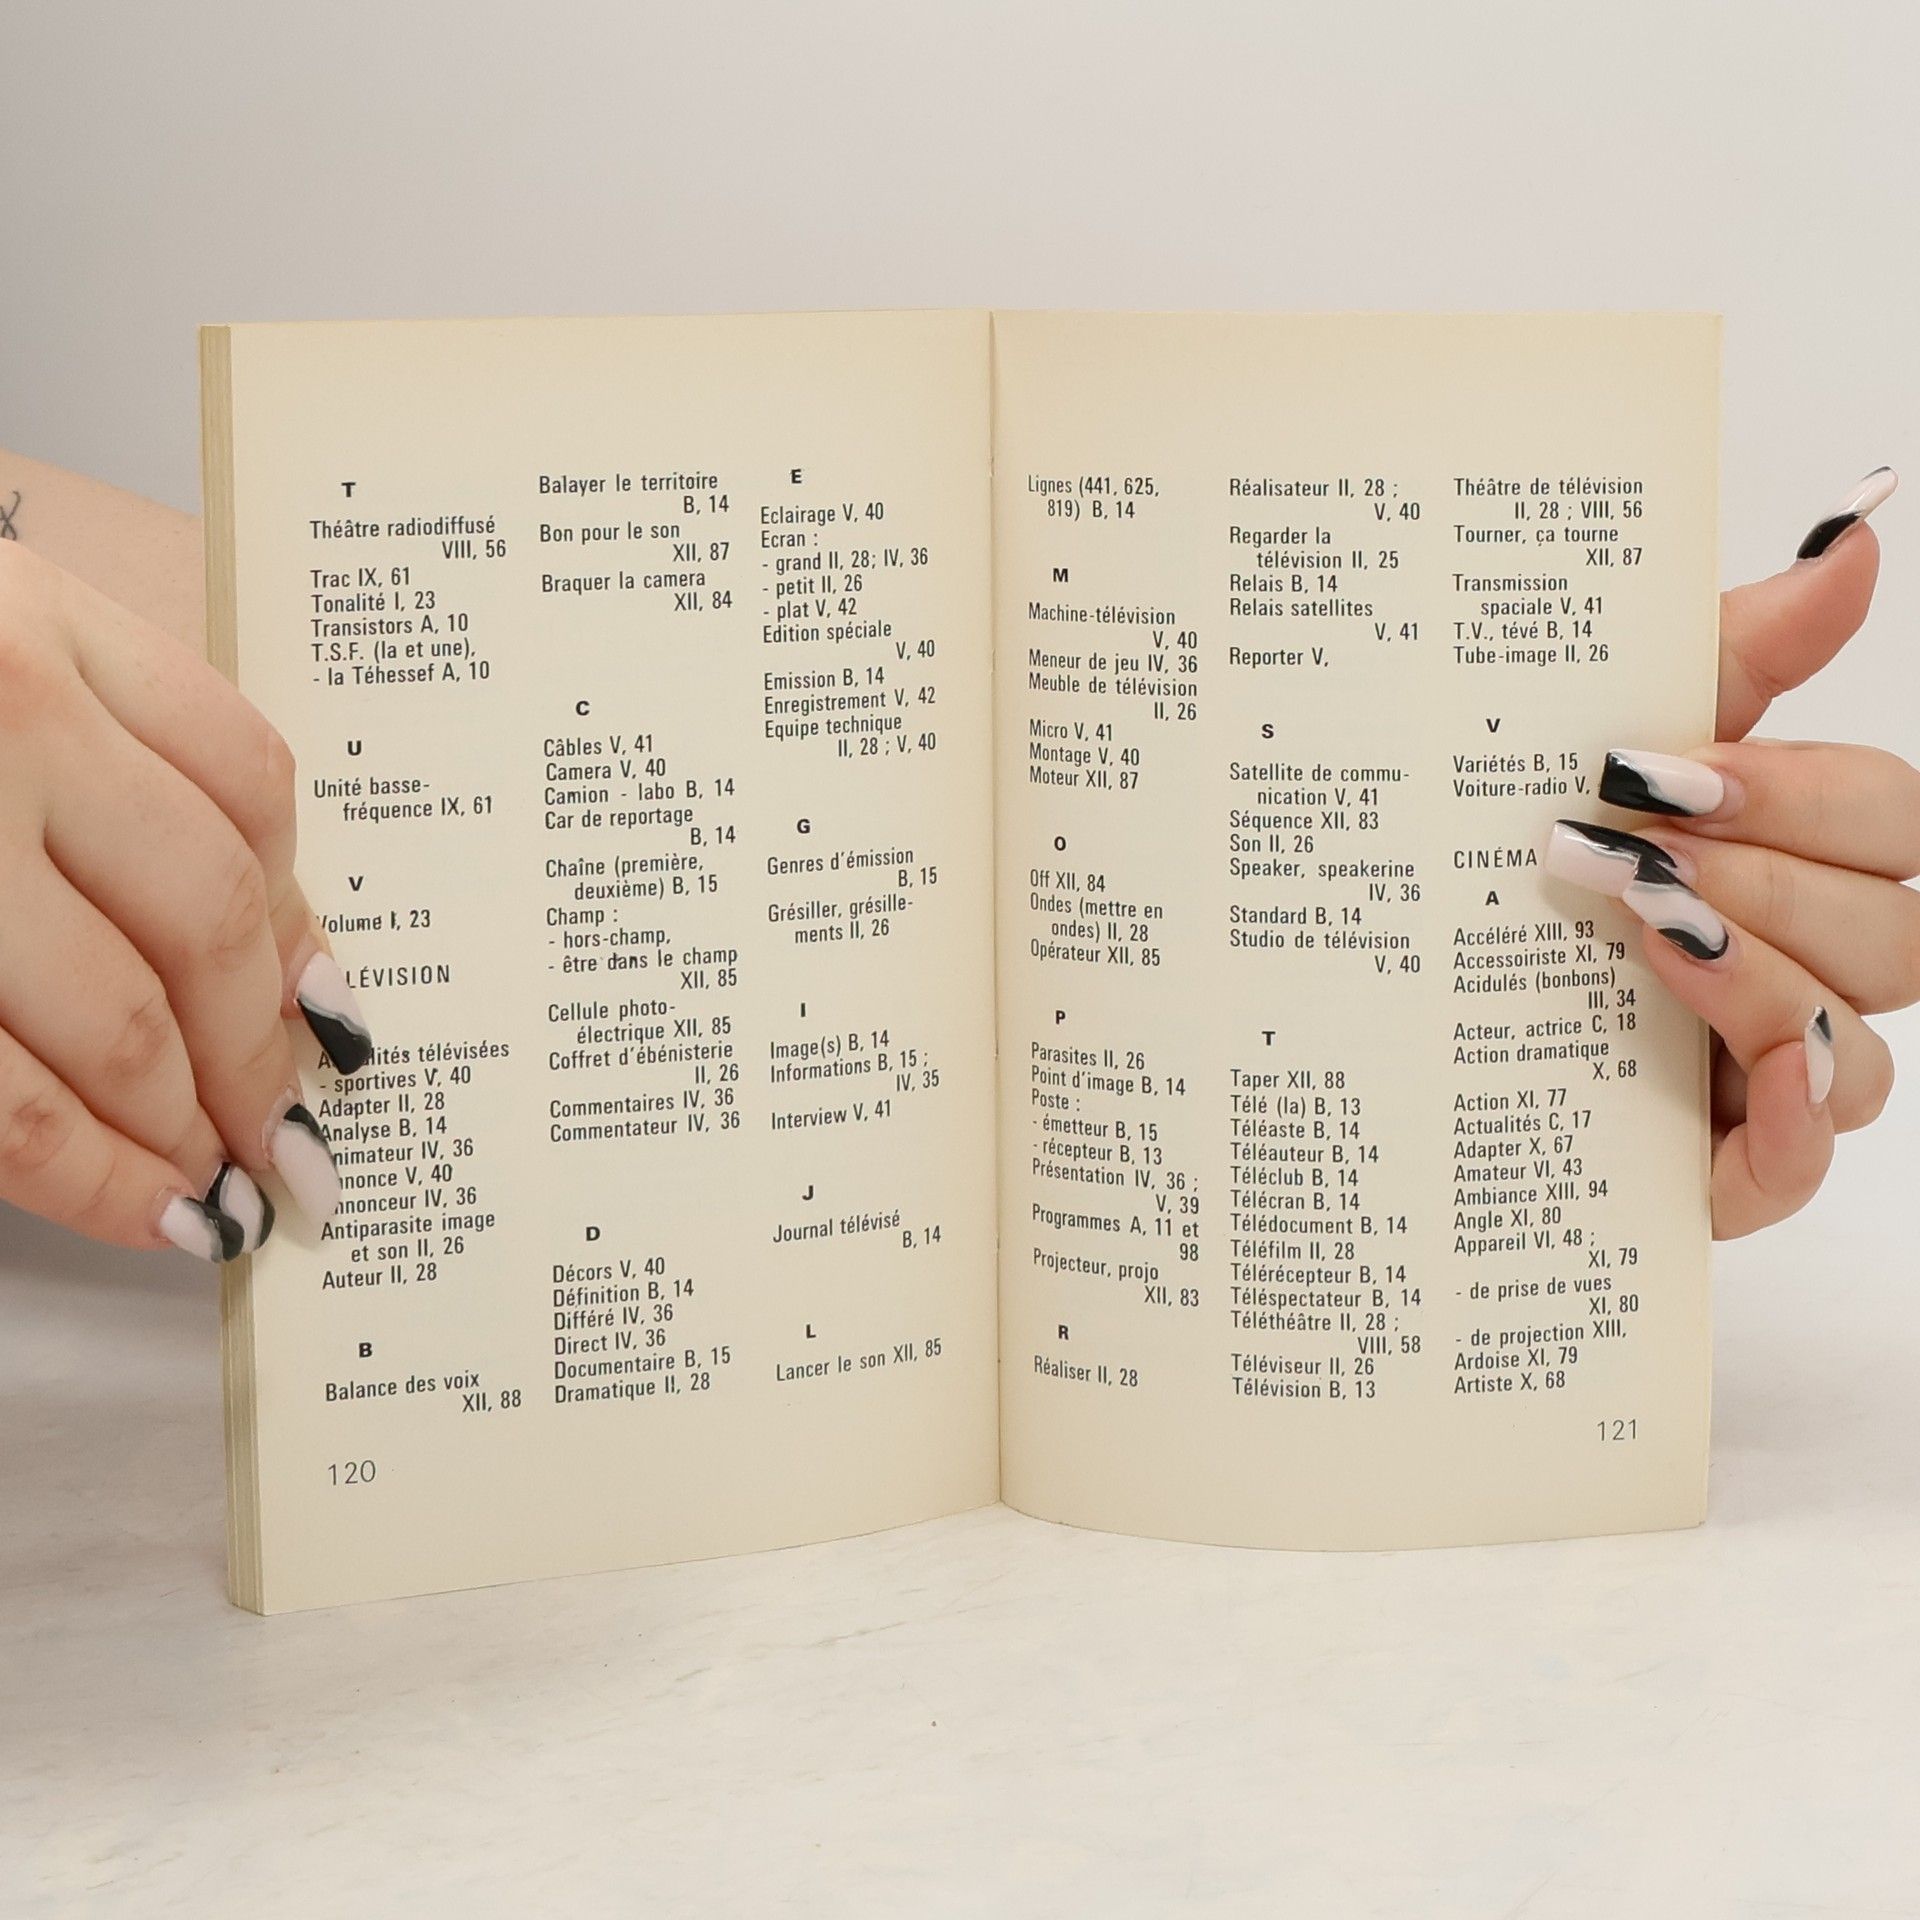 T
Théâtre radiodiffusé
VIII, 56
Trac IX, 61
Tonalité I, 23
Transistors A, 10
T.S.F. (la et une),
- la Téhessef A, 10
U
Unité basse-
fréquence IX, 61
V
Volume I, 23
LÉVISION
télévisées
- sportives V, 40
Adapter II, 28
Analyse B, 14
nimateur IV, 36
nnonce V, 40
nnonceur IV, 36
Antiparasite image
et son II, 26
Auteur II, 28
B
Balance des voix
XII, 88
Balayer le territoire
B, 14
Bon pour le son
XII, 87
Braquer la camera
XII, 84
C
Câbles V, 41
Camera V, 40
Camion - labo B, 14
Car de reportage
B, 14
Chaîne (première,
deuxième) B, 15
Champ :
- hors-champ,
- être dans le champ
XII, 85
Cellule photo-
électrique XII, 85
Coffret d'ébénisterie
II, 26
Commentaires IV, 36
Commentateur IV, 36
D
Décors V, 40
Définition B, 14
Différé IV, 36
Direct IV, 36
Documentaire B, 15
Dramatique II, 28
E
Eclairage V, 40
Ecran :
- grand II, 28; IV, 36
- petit II, 26
- plat V, 42
Edition spéciale
V, 40
Emission B, 14
Enregistrement V, 42
Equipe technique
II, 28 ; V, 40
G
Genres d'émission
B, 15
Grésiller, grésille-
ments II, 26
I
Image(s) B, 14
Informations B, 15 ;
IV, 35
Interview V, 41
J
Journal télévisé
B, 14
L
Lancer le son XII, 85
120
Lignes (441, 625,
819) B, 14
M
Machine-télévision
V, 40
Meneur de jeu IV, 36
Meuble de télévision
II, 26
Micro V, 41
Montage V, 40
Moteur XII, 87
O
Off XII, 84
Ondes (mettre en
ondes) II, 28
Opérateur XII, 85
P
Parasites II, 26
Point d'image B, 14
Poste :
- émetteur B, 15
- récepteur B, 13
Présentation IV, 36 ;
V, 39
Programmes A, 11 et
98
Projecteur, projo
XII, 83
R
Réaliser II, 28
Réalisateur II, 28 ;
V, 40
Regarder la
télévision II, 25
Relais B, 14
Relais satellites
V, 41
Reporter V,
S
Satellite de commu-
nication V, 41
Séquence XII, 83
Son II, 26
Speaker, speakerine
IV, 36
Standard B, 14
Studio de télévision
V, 40
T
Taper XII, 88
Télé (la) B, 13
Téléaste B, 14
Téléauteur B, 14
Téléclub B, 14
Télécran B, 14
Télédocument B, 14
Téléfilm II, 28
Télérécepteur B, 14
Téléspectateur B, 14
Téléthéâtre II, 28 ;
VIII, 58
Téléviseur II, 26
Télévision B, 13
Théâtre de télévision
II, 28 ; VIII, 56
Tourner, ça tourne
XII, 87
Transmission
spaciale V, 41
T.V., tévé B, 14
Tube-image II, 26
V
Variétés B, 15
Voiture-radio V,
CINÉMA
A
Accéléré XIII, 93
Accessoiriste XI, 79
Acidulés (bonbons)
III, 34
Acteur, actrice C, 18
Action dramatique
X, 68
Action XI, 77
Actualités C, 17
Adapter X, 67
Amateur VI, 43
Ambiance XIII, 94
Angle XI, 80
Appareil VI, 48 ;
XI, 79
- de prise de vues
XI, 80
- de projection XIII,
Ardoise XI, 79
Artiste X, 68
121